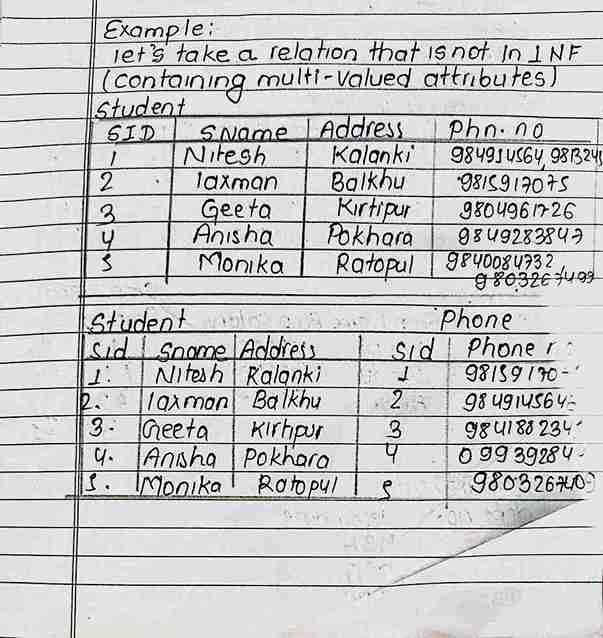 Example:
let's take a relation that is not In 1NF
(containing multi-valued attributes)
Student
SID SName Address Phn. no
1 Nitesh Kalanki 984914564, 981324
2 laxman Balkhu 9815917075
3 Geeta Kirtipur 9804961726
4 Anisha Pokhara 9849283847
5 Monika Ratopul 9840084732,
9803267499
Student Phone
Sid Sname Address Sid Phone
1. Nitesh Kalanki 1 98159170
2. laxman Balkhu 2 984914564
3. Geeta Kirtipur 3 984188234
4. Anisha Pokhara 4 09939284
5. Monika Ratopul 5 980326740